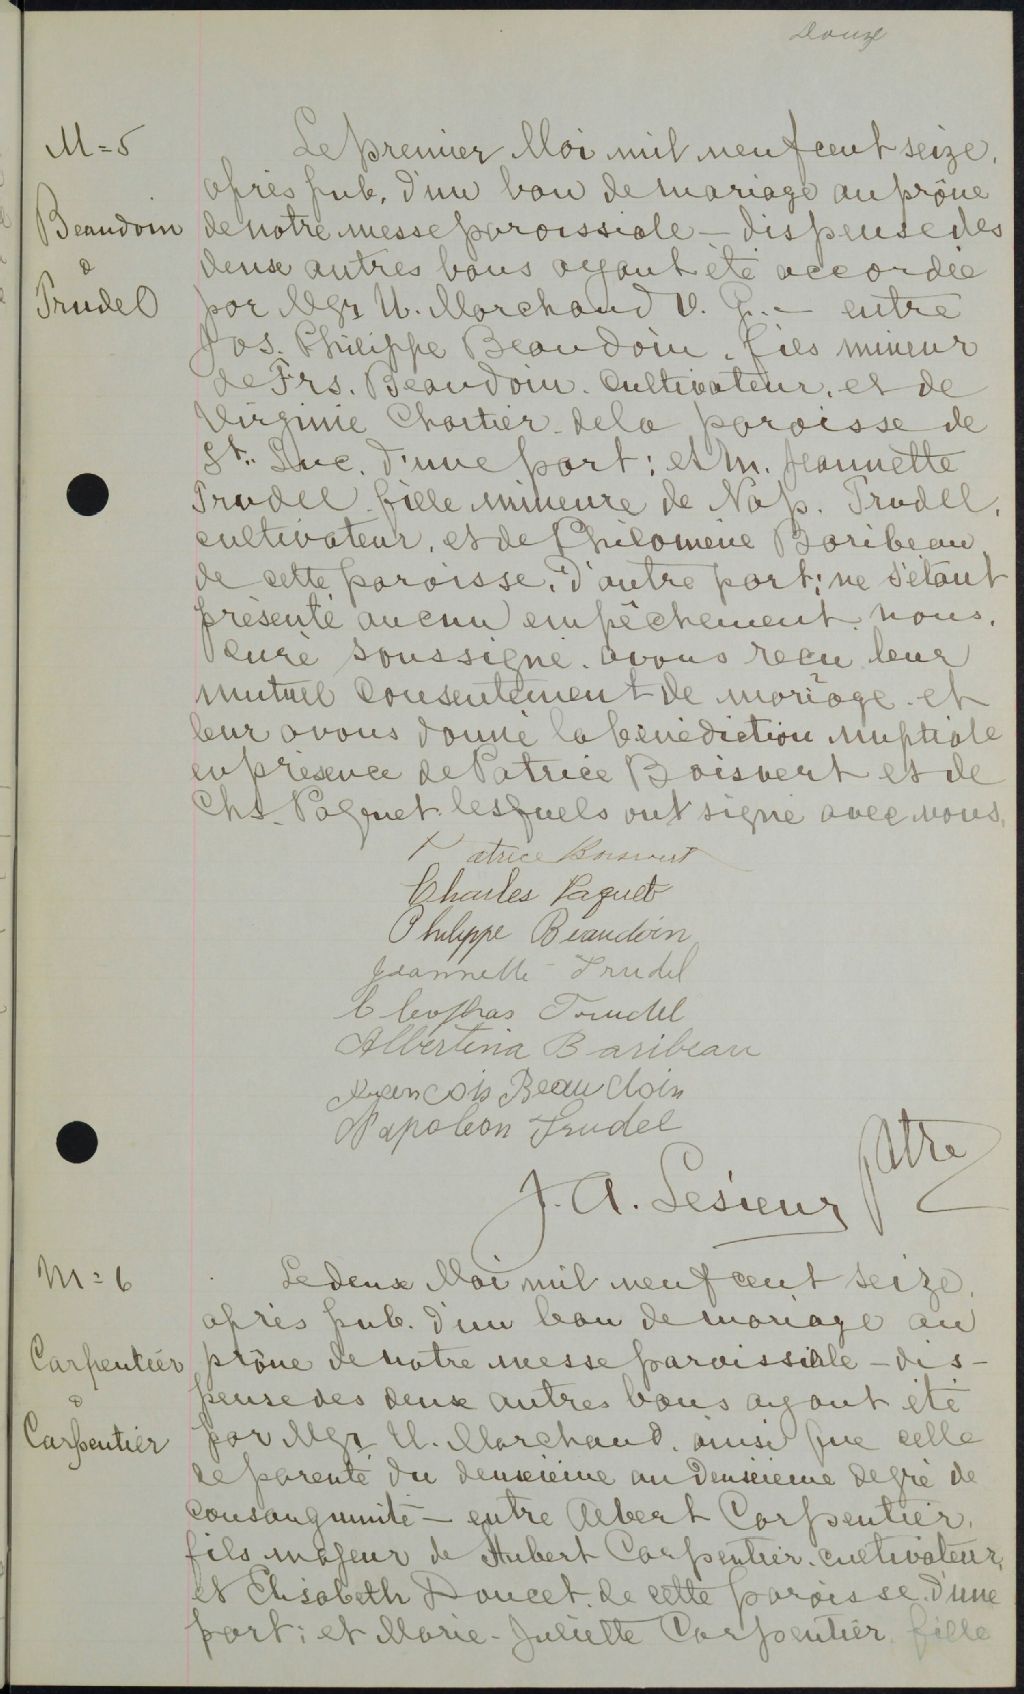 Douze
M = 5
Beaudoin
&
Trudel
Le premier Mai mil neuf cent seize,
après pub. d'un ban de mariage au prône
de notre messe paroissiale — dispense des
deux autres bans ayant été accordée
par Mgr U. Marchand V. G. — entre
Jos. Philippe Beaudoin, fils mineur
de Frs. Beaudoin, cultivateur, et de
Virginie Chartier de la paroisse de
St. Luc, d'une part; et M. Jeannette
Trudel fille mineure de Nap. Trudel,
cultivateur, et de Philomène Baribeau,
de cette paroisse, d'autre part; ne s'étant
présenté aucun empêchement, nous,
curé soussigné, avons reçu leur
mutuel consentement de mariage et
leur avons donné la bénédiction nuptiale
en présence de Patrice Boisvert et de
Chs. Paquet lesquels ont signé avec nous.
Patrice Boisvert
Charles Paquet
Philippe Beaudoin
Jeannette Trudel
Cleophas Trudel
Albertina Baribeau
François Beaudoin
Napoleon Trudel
J. A. Lesieur Ptre
M = 6
Carpentier
&
Carpentier
Le deux Mai mil neuf cent seize,
après pub. d'un ban de mariage au
prône de notre messe paroissiale — dis-
pense des deux autres bans ayant été
par Mgr U. Marchand, ainsi que celle
de parenté du deuxième au deuxième degré de
consanguinité — entre Albert Carpentier,
fils majeur de Hubert Carpentier, cultivateur,
et Elisabeth Doucet, de cette paroisse, d'une
part; et Marie-Juliette Carpentier, fille